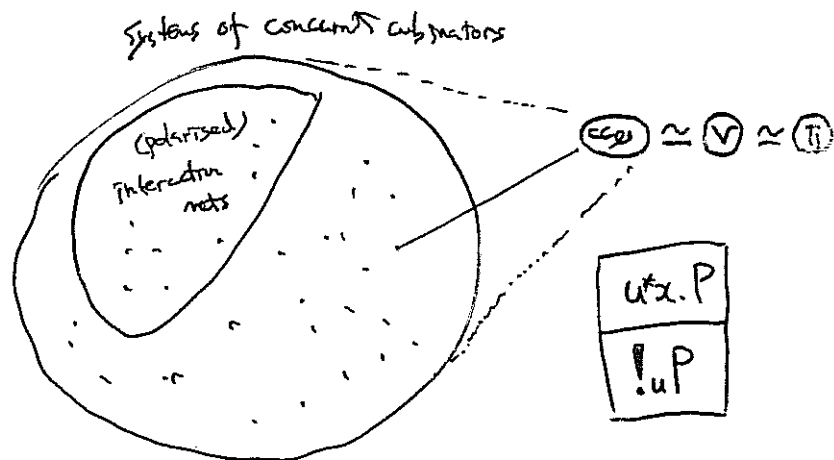 Systems of concurrent combinators
(polarised)
interaction
nets
≃ V ≃ π
u*x.P
!uP